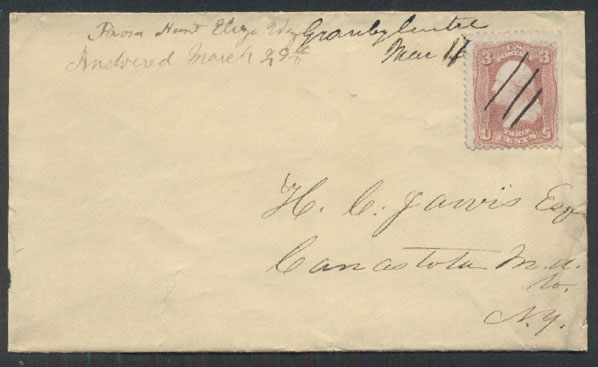 From Aunt Eliza
Granby Centre
Answered March 29th
Mar 14
3 3
U S
H. C. Jarvis Esq
Canastota Mad.
Co.
N.Y.